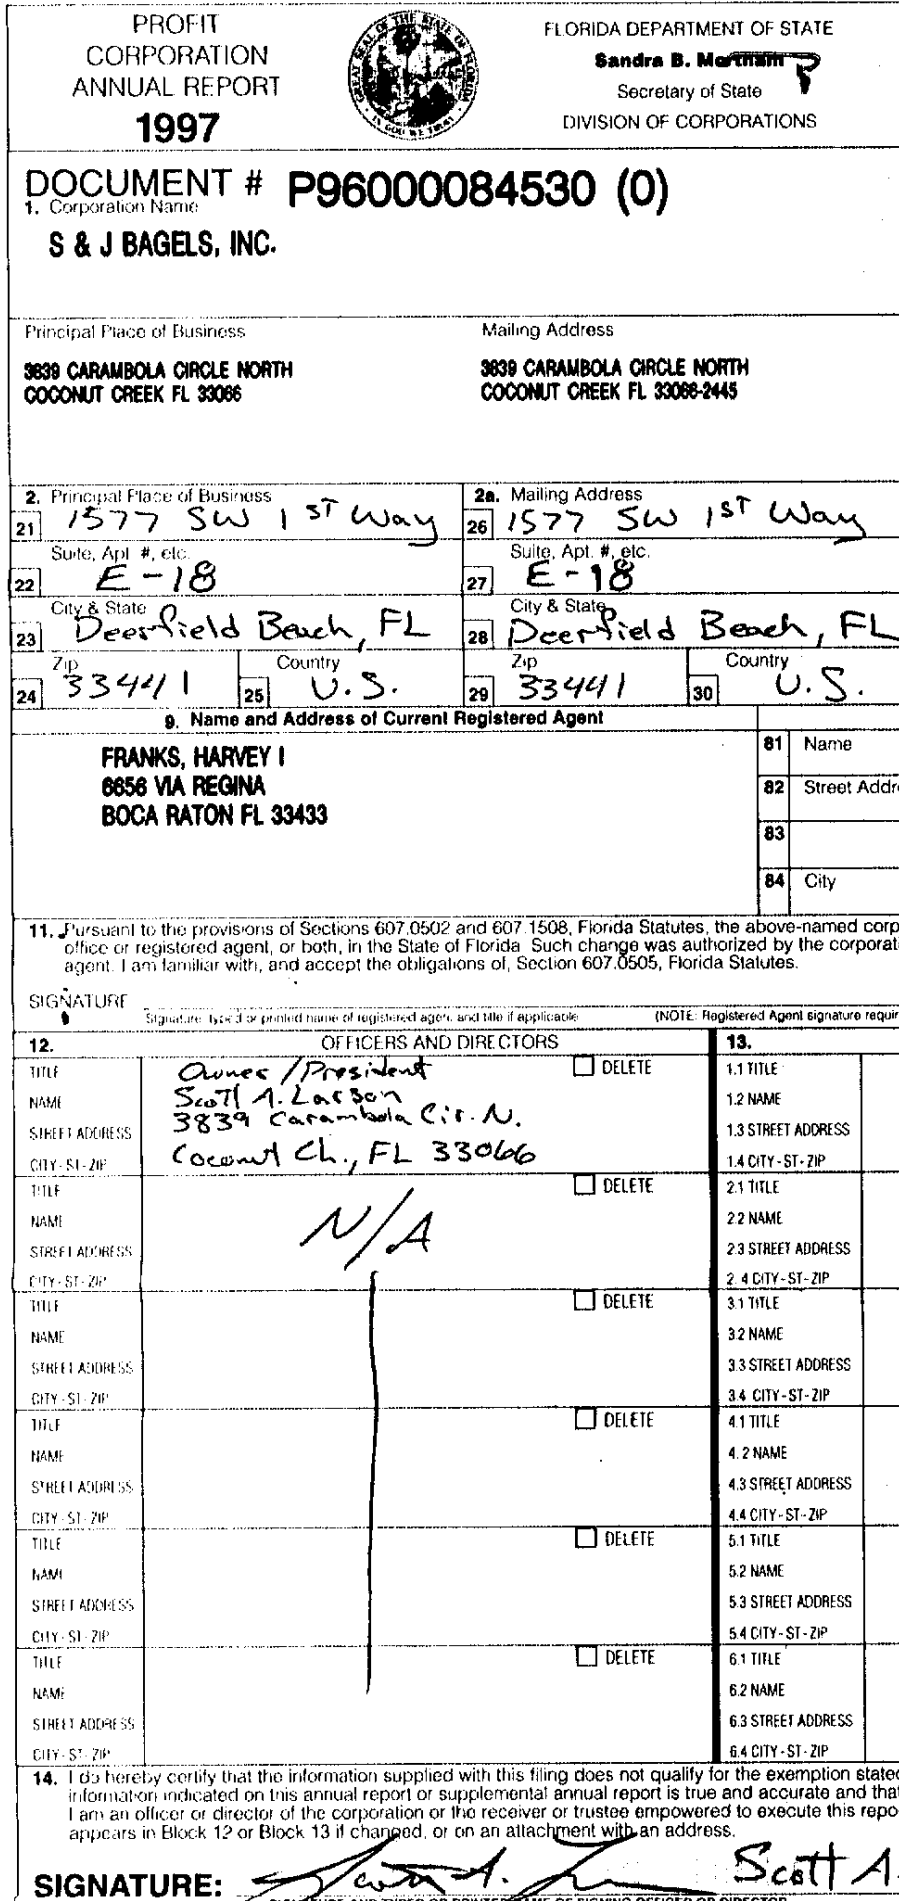 PROFIT
CORPORATION
ANNUAL REPORT
1997
GREAT SEAL OF THE STATE OF FLORIDA
IN GOD WE TRUST
FLORIDA DEPARTMENT OF STATE
Sandra B. Mortham
Secretary of State
DIVISION OF CORPORATIONS
DOCUMENT # P96000084530 (0)
1. Corporation Name
S & J BAGELS, INC.
Principal Place of Business
Mailing Address
3839 CARAMBOLA CIRCLE NORTH
COCONUT CREEK FL 33066
3839 CARAMBOLA CIRCLE NORTH
COCONUT CREEK FL 33066-2445
2. Principal Place of Business
2a. Mailing Address
21 1577 SW 1ST Way
26 1577 SW 1ST Way
Suite, Apt. #, etc.
Suite, Apt. #, etc.
22 E-18
27 E-18
City & State
City & State
23 Deerfield Beach, FL
28 Deerfield Beach, FL
Zip
Country
Zip
Country
24 33441
25 U.S.
29 33441
30 U.S.
9. Name and Address of Current Registered Agent
FRANKS, HARVEY I
6656 VIA REGINA
BOCA RATON FL 33433
81 Name
82 Street Addr
83
84 City
11. Pursuant to the provisions of Sections 607.0502 and 607.1508, Florida Statutes, the above-named corp
office or registered agent, or both, in the State of Florida. Such change was authorized by the corporat
agent. I am familiar with, and accept the obligations of, Section 607.0505, Florida Statutes.
SIGNATURE
Signature, typed or printed name of registered agent and title if applicable
(NOTE: Registered Agent signature requir
12. OFFICERS AND DIRECTORS
13.
TITLE Owner/President DELETE
NAME Scott A. Larson
STREET ADDRESS 3839 Carambola Cir. N.
CITY-ST-ZIP Coconut Ck., FL 33066
1.1 TITLE
1.2 NAME
1.3 STREET ADDRESS
1.4 CITY-ST-ZIP
TITLE DELETE
NAME N/A
STREET ADDRESS
CITY-ST-ZIP
2.1 TITLE
2.2 NAME
2.3 STREET ADDRESS
2.4 CITY-ST-ZIP
TITLE DELETE
NAME
STREET ADDRESS
CITY-ST-ZIP
3.1 TITLE
3.2 NAME
3.3 STREET ADDRESS
3.4 CITY-ST-ZIP
TITLE DELETE
NAME
STREET ADDRESS
CITY-ST-ZIP
4.1 TITLE
4.2 NAME
4.3 STREET ADDRESS
4.4 CITY-ST-ZIP
TITLE DELETE
NAME
STREET ADDRESS
CITY-ST-ZIP
5.1 TITLE
5.2 NAME
5.3 STREET ADDRESS
5.4 CITY-ST-ZIP
TITLE DELETE
NAME
STREET ADDRESS
CITY-ST-ZIP
6.1 TITLE
6.2 NAME
6.3 STREET ADDRESS
6.4 CITY-ST-ZIP
14. I do hereby certify that the information supplied with this filing does not qualify for the exemption stated
information indicated on this annual report or supplemental annual report is true and accurate and that
I am an officer or director of the corporation or the receiver or trustee empowered to execute this repo
appears in Block 12 or Block 13 if changed, or on an attachment with an address.
SIGNATURE: Scott A.